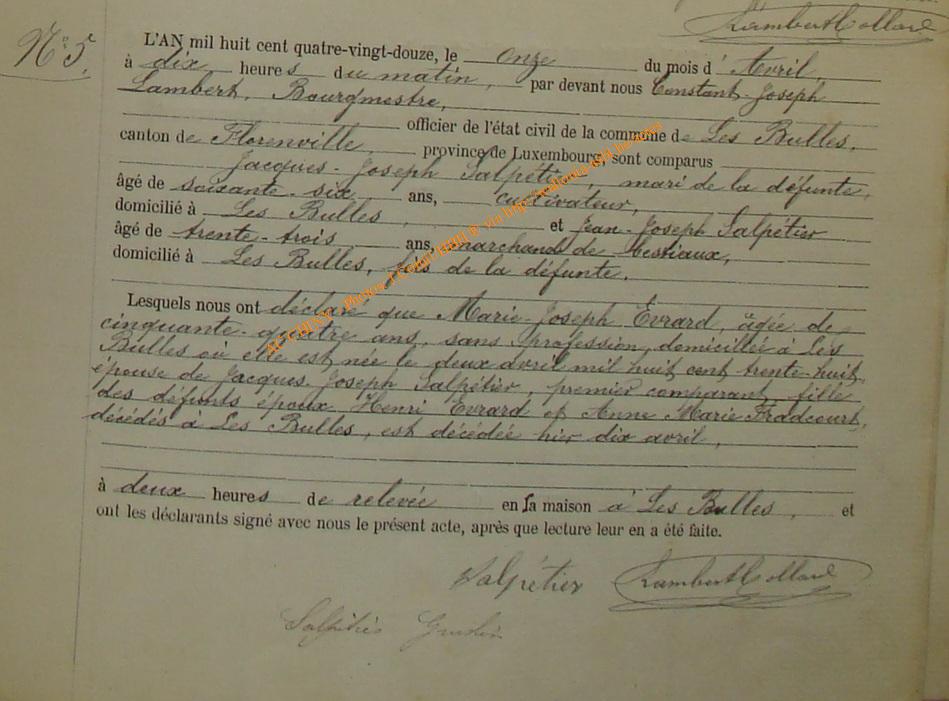 Lambert Collard
Nº 5.
L'AN mil huit cent quatre-vingt-douze, le onze du mois d' Avril,
à dix heures du matin, par devant nous Constant-Joseph
Lambert, Bourgmestre,
officier de l'état civil de la commune de Les Bulles,
canton de Florenville, province de Luxembourg, sont comparus
Jacques-Joseph Salpétier, mari de la défunte,
âgé de soixante-six ans, cultivateur,
domicilié à Les Bulles, et Jean-Joseph Salpétier
âgé de trente-trois ans, marchand de bestiaux,
domicilié à Les Bulles, fils de la défunte.
Lesquels nous ont déclaré que Marie-Joseph Evrard, âgée de
cinquante-quatre ans, sans profession, domiciliée à Les
Bulles où elle est née le deux avril mil huit cent trente-huit,
épouse de Jacques Joseph Salpétier, premier comparant, fille
des défunts époux Henri Evrard et Anne Marie Pradcourt,
décédés à Les Bulles, est décédée hier dix avril,
à deux heures de relevée en la maison à Les Bulles, et
ont les déclarants signé avec nous le présent acte, après que lecture leur en a été faite.
Salpétier Lambert Collard
Salpétier